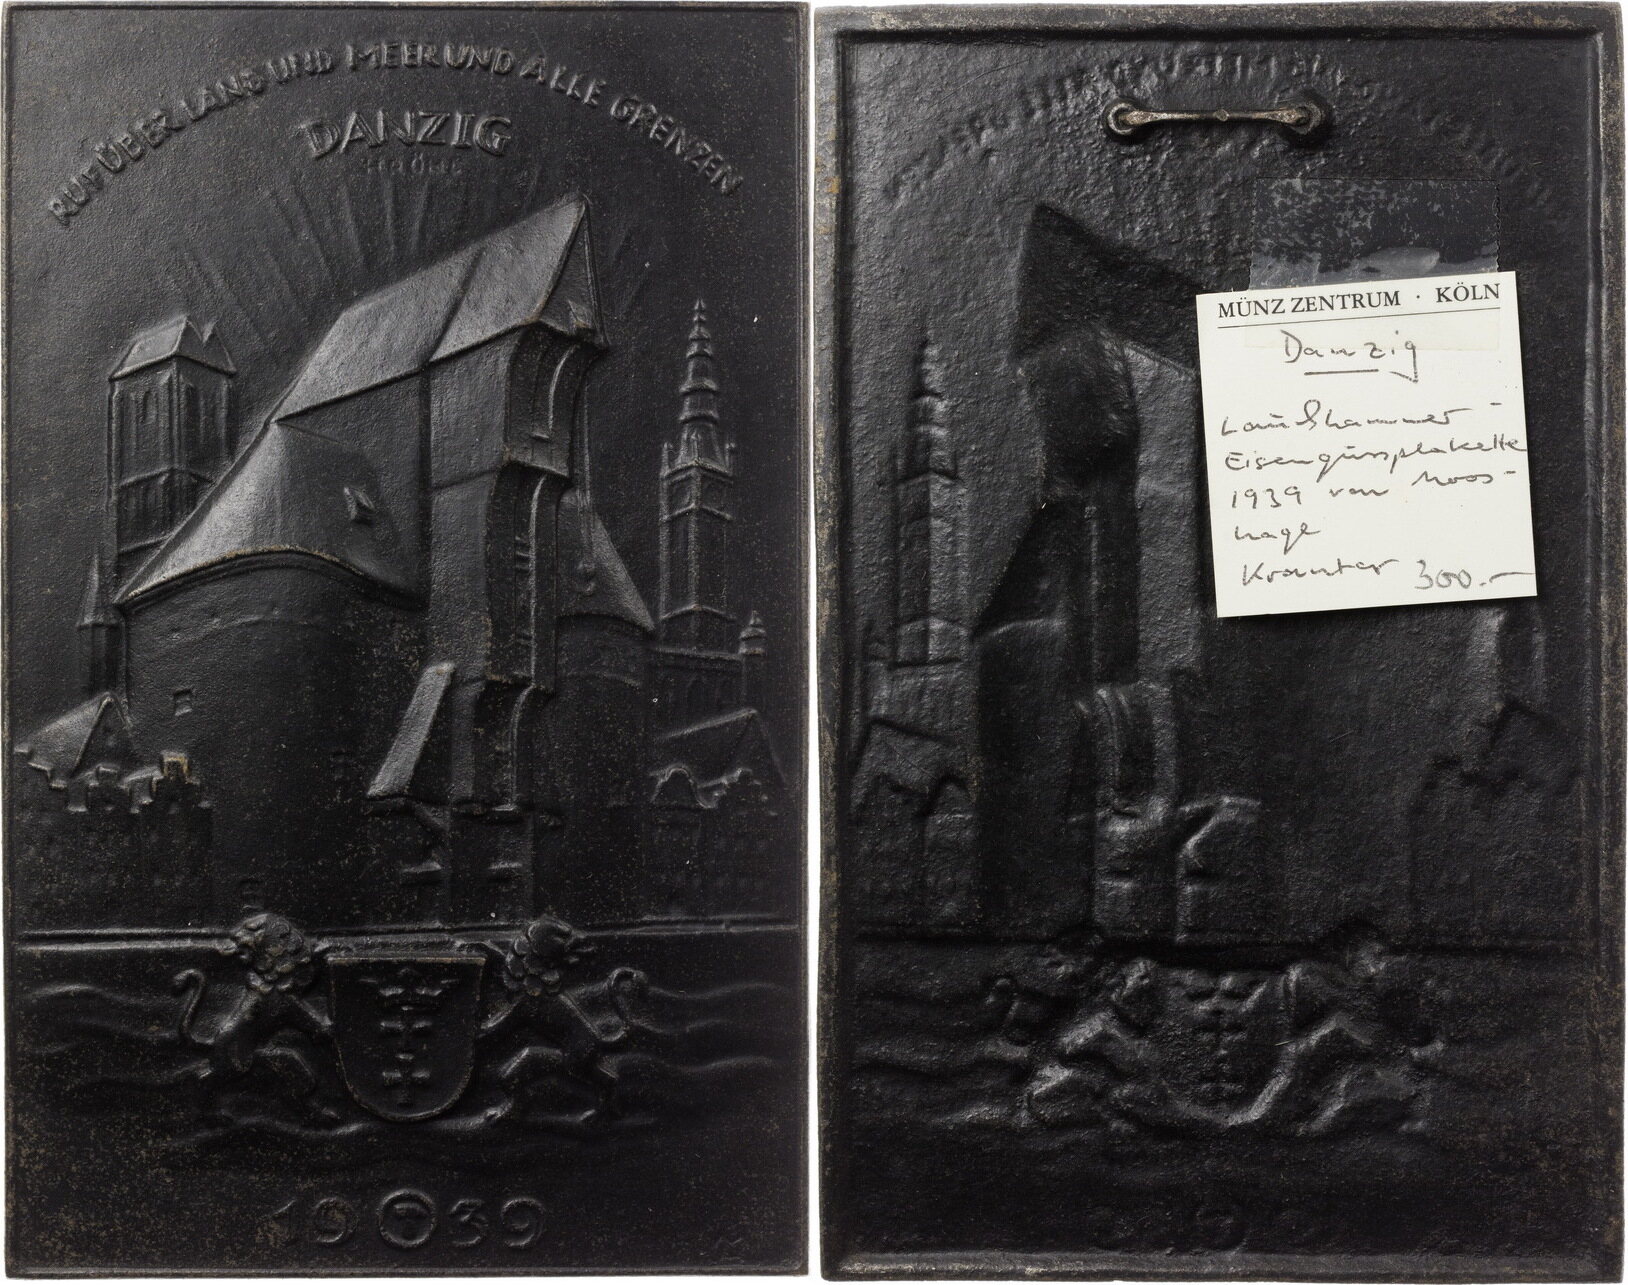 RUF ÜBER LAND UND MEER UND ALLE GRENZEN
DANZIG
1939
MÜNZ ZENTRUM · KÖLN
Danzig
Lauchhammer-
Eisengussplakette
1939 von Moos-
hage
300.-